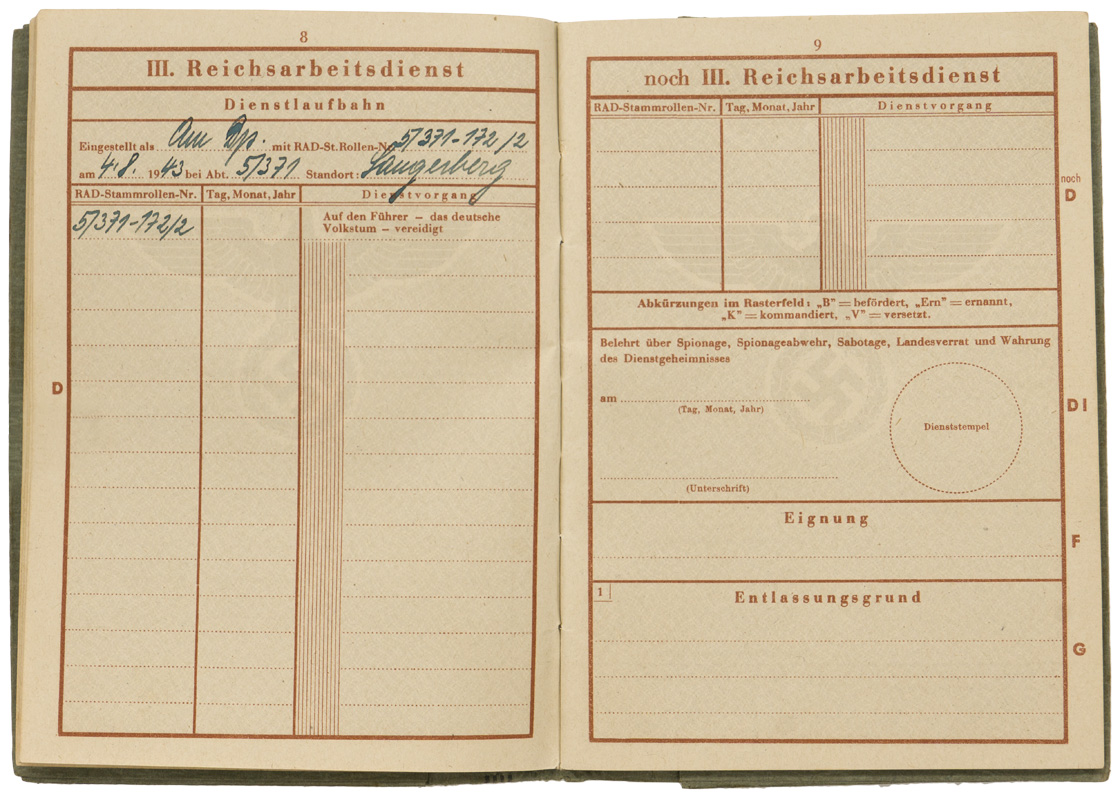 8
III. Reichsarbeitsdienst
Dienstlaufbahn
Eingestellt als Am mit RAD-St.Rollen-Nr. 5/371-172/2
am 4.8. 1943 bei Abt. 5/371 Standort: Langerberg
RAD-Stammrollen-Nr. Tag, Monat, Jahr Dienstvorgang
5/371-172/2 Auf den Führer – das deutsche
Volkstum – vereidigt
D
9
noch III. Reichsarbeitsdienst
RAD-Stammrollen-Nr. Tag, Monat, Jahr Dienstvorgang
noch
D
Abkürzungen im Rasterfeld: „B” = befördert, „Ern” = ernannt,
„K” = kommandiert, „V” = versetzt.
Belehrt über Spionage, Spionageabwehr, Sabotage, Landesverrat und Wahrung
des Dienstgeheimnisses
am
(Tag, Monat, Jahr)
Dienststempel
DI
(Unterschrift)
Eignung
F
1
Entlassungsgrund
G